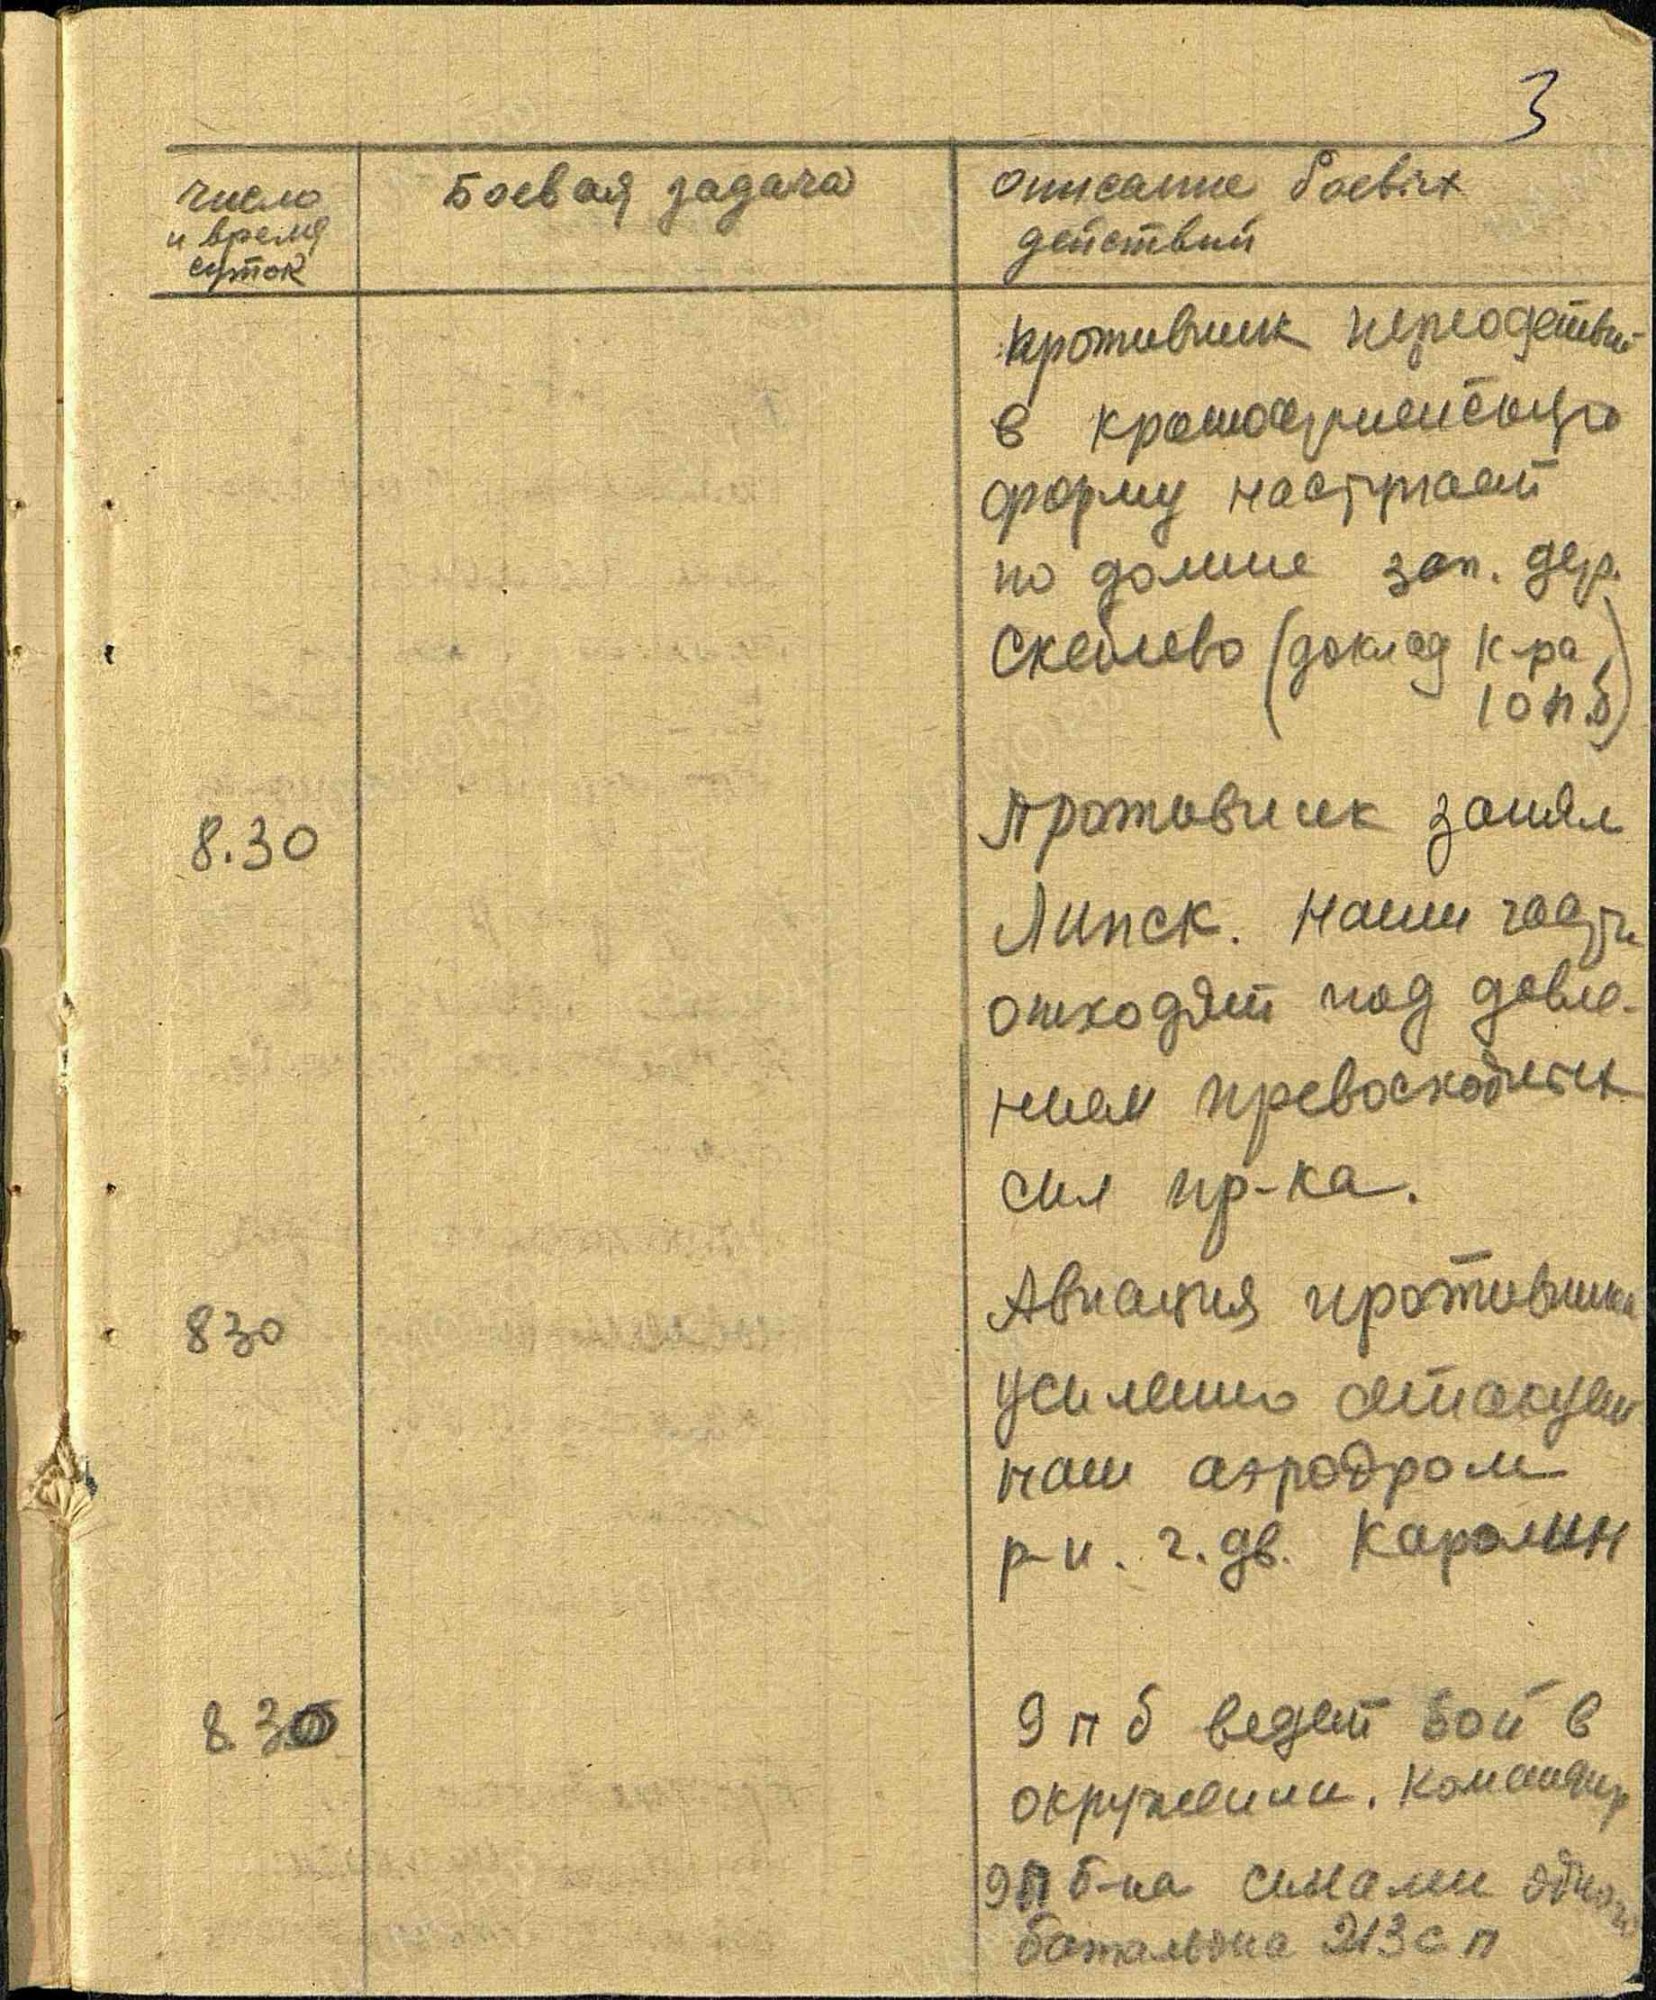 3
число
и время
суток
Боевая задача
описание боевых
действий
противник переодетый
в красноармейскую
форму наступает
по долине зап. дер.
Скеблево (доклад к-ра
10 п б)
8.30
Противник занял
Липск. Наши части
отходят под давле-
нием превосходящих
сил пр-ка.
830
Авиация противника
усиленно атакует
наш аэродром
р-н. г. дв. Каролин
8.30
9 п б ведет бой в
окружении. Командир
9П б-на силами одного
батальона 213 с п